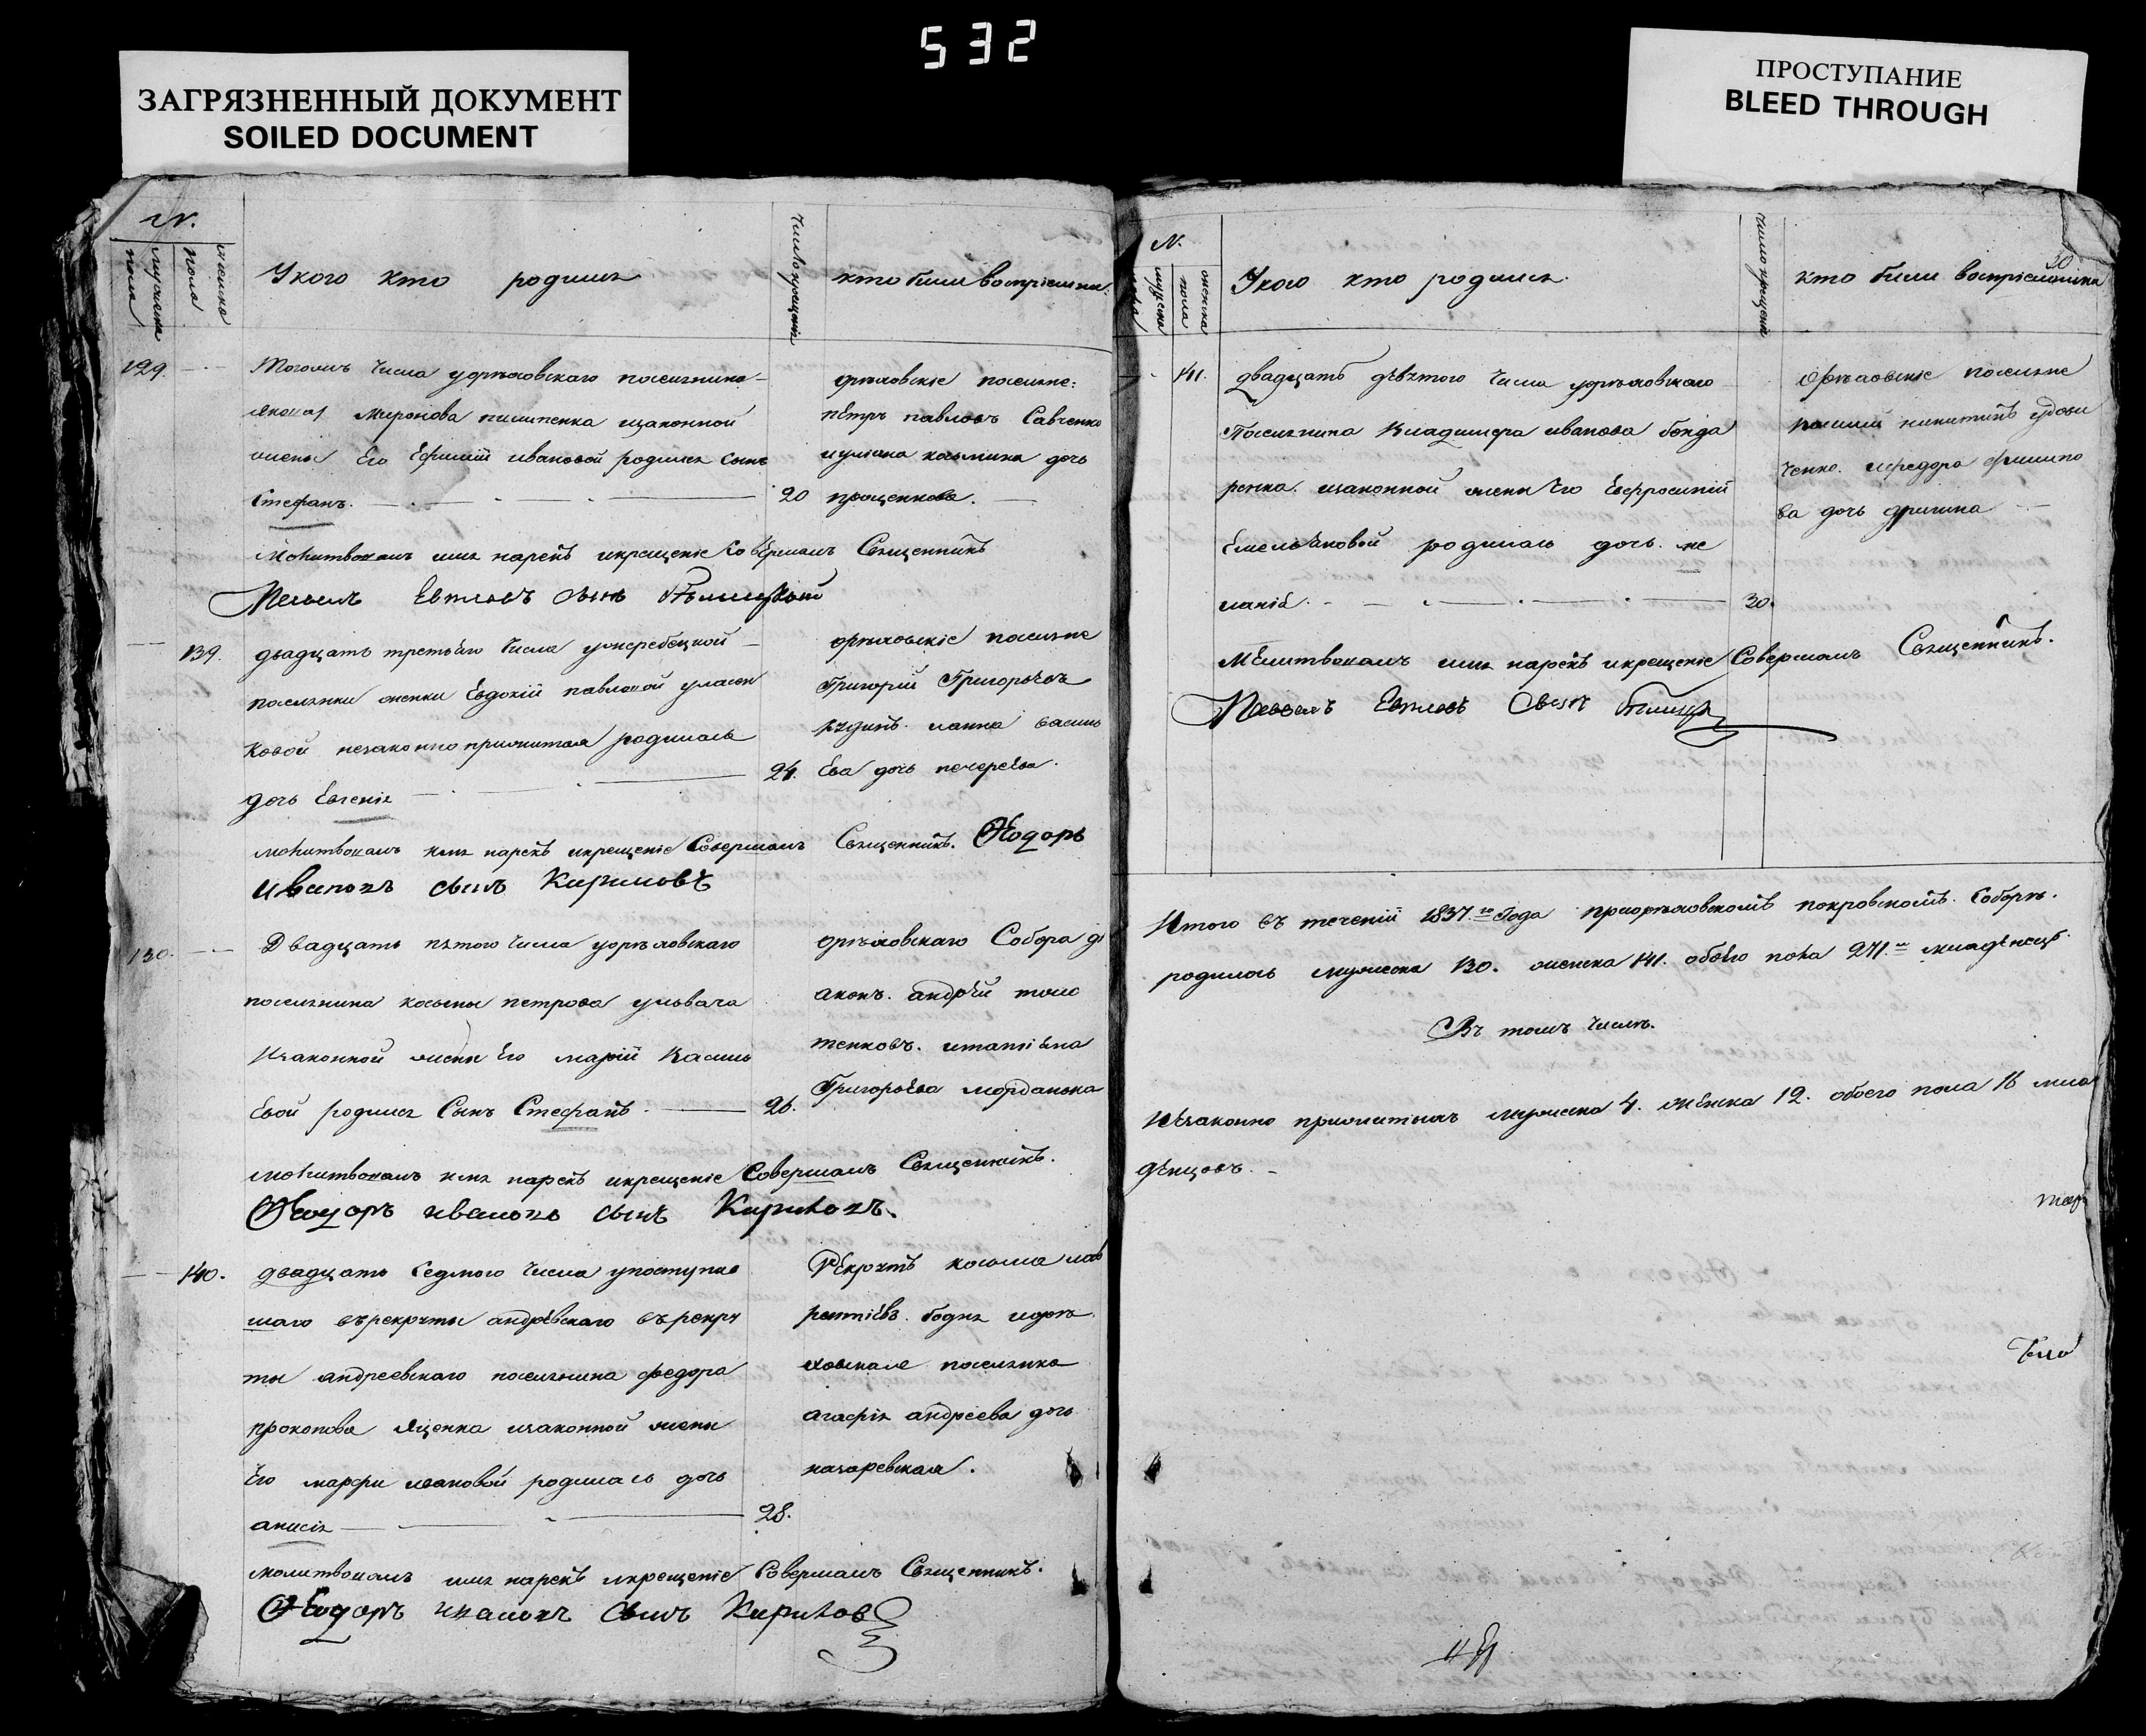 532
ЗАГРЯЗНЕННЫЙ ДОКУМЕНТ
SOILED DOCUMENT
ПРОСТУПАНИЕ
BLEED THROUGH
N.
мужеска пола
женска пола
У кого кто родился
число крещенія
кто были воспріемники
129.
Тогожъ числа уорѣховскаго поселянина
Миронова пилипенка изаконной
жены Его Ефиміи ивановой родился сынъ
Стефанъ.
20
орѣховскіе поселяне:
пётръ павловъ Савченко
иуліана козьмина дочь
проценкова.
Молитвовалъ имя нарекъ икрещеніе Совершалъ Священникъ
139.
двадцать третьяго числа ужеребецкой
поселянки женки Евдокіи павловой уласен
ковой незаконноприжитая родилась
дочь Евгенія
24.
орѣховскіе поселяне
Григорій Григорьевъ
ианна василь
ева дочь
молитвовалъ имя нарекъ икрещеніе Совершалъ Священникъ. Ѳеодоръ
ивановъ сынъ Кириловъ
130.
Двадцать пятого числа уорѣховскаго
поселянина козьмы петрова
изаконной жены Его маріи Василь
евой родился Сынъ Стефанъ.
26.
орѣховскаго Собора дi
аконъ. андрей толс
тенковъ. итатіяна
Григорьева
молитвовалъ имя нарекъ икрещеніе Совершалъ Священникъ.
Ѳеодоръ ивановъ сынъ Кириловъ.
140.
двадцать седмого числа упоступив
шаго врекруты андреевскаго врекру
ты андреевскаго поселянина федора
прокопова яценка изаконной жены
Его марфи ивановой родилась дочь
анисія
28.
Рекрутъ козьма лав
рентіевъ. бодня иорѣ
ховская поселянка
агафія андреева дочь
назаревская.
молитвовалъ имя нарекъ икрещеніе Совершалъ Священникъ.
Ѳеодоръ ивановъ сынъ Кириловъ
N.
мужеска пола
женска пола
У кого кто родился
число крещенія
кто были воспріемники
30
141.
двадцать девятого числа уорѣховскаго
Поселянина Владимера иванова бонда
ренка. изаконной жены Его Евфросиніи
Емельяновой родилась дочь. ме
ланія.
30.
орѣховскіе поселяне
никитинъ удови
ченко. ифедора филипо
ва дочь
Молитвовалъ имя нарекъ икрещеніе Совершалъ Священникъ.
Итого въ теченіи 1837.го Года приорѣховскомъ покровскомъ. Соборѣ.
родилось мужеска 130. женска 141. обоего пола 271.нъ младенецъ.
Въ томъ числѣ.
Незаконно прижитыхъ мужеска 4. женска 12. обоего пола 16 мла
денцовъ.